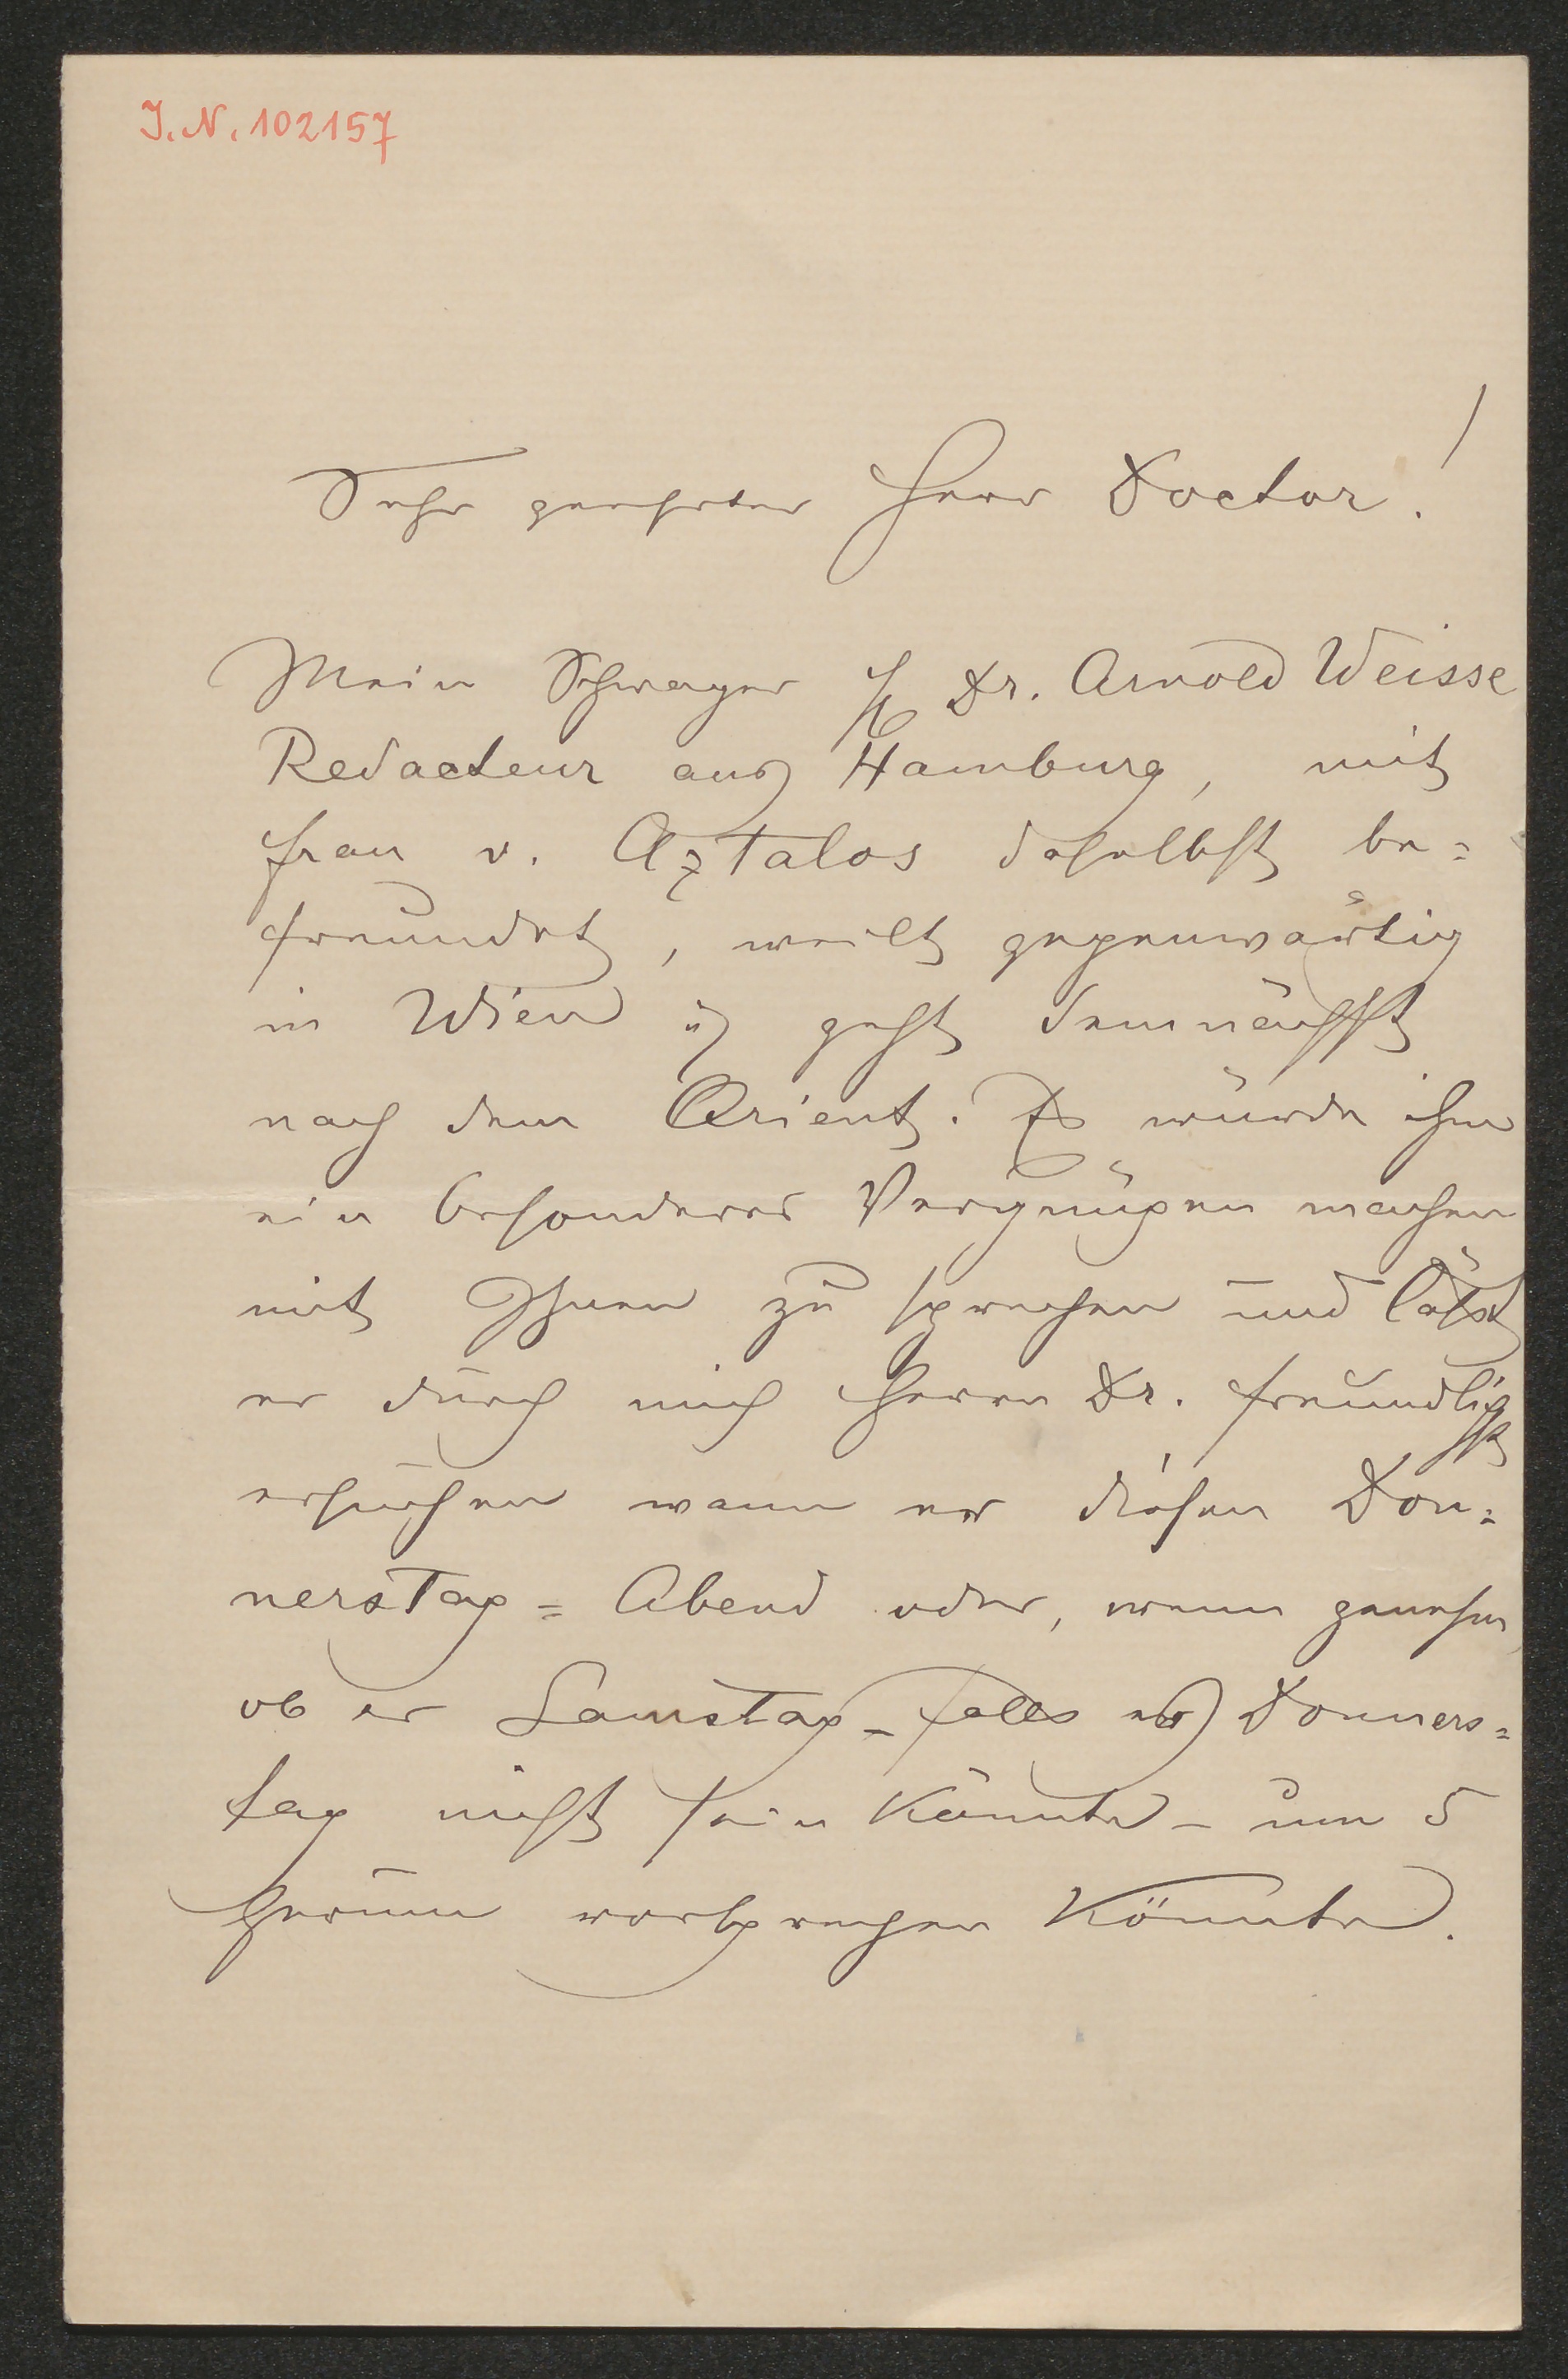 I.N. 102157
Sehr geehrter Herr Doctor!
Mein Schwager H Dr. Arnold Weisse
Redacteur aus Hamburg, mit
Frau v. Aztalos daselbst be=
freundet, weilt gegenwärtig
in Wien u geht demnächst
nach dem Orient. Es würde ihm
ein besonderes Vergnügen machen
mit Ihnen zu sprechen und läßt
er durch mich Herrn Dr. freundlichst
ersuchen wann er diesen Don=
nerstag = Abend oder, wenn genehm,
ob er Samstag – falls es Donners=
tag nicht sein könnte – um 5
herum vorsprechen könnte.